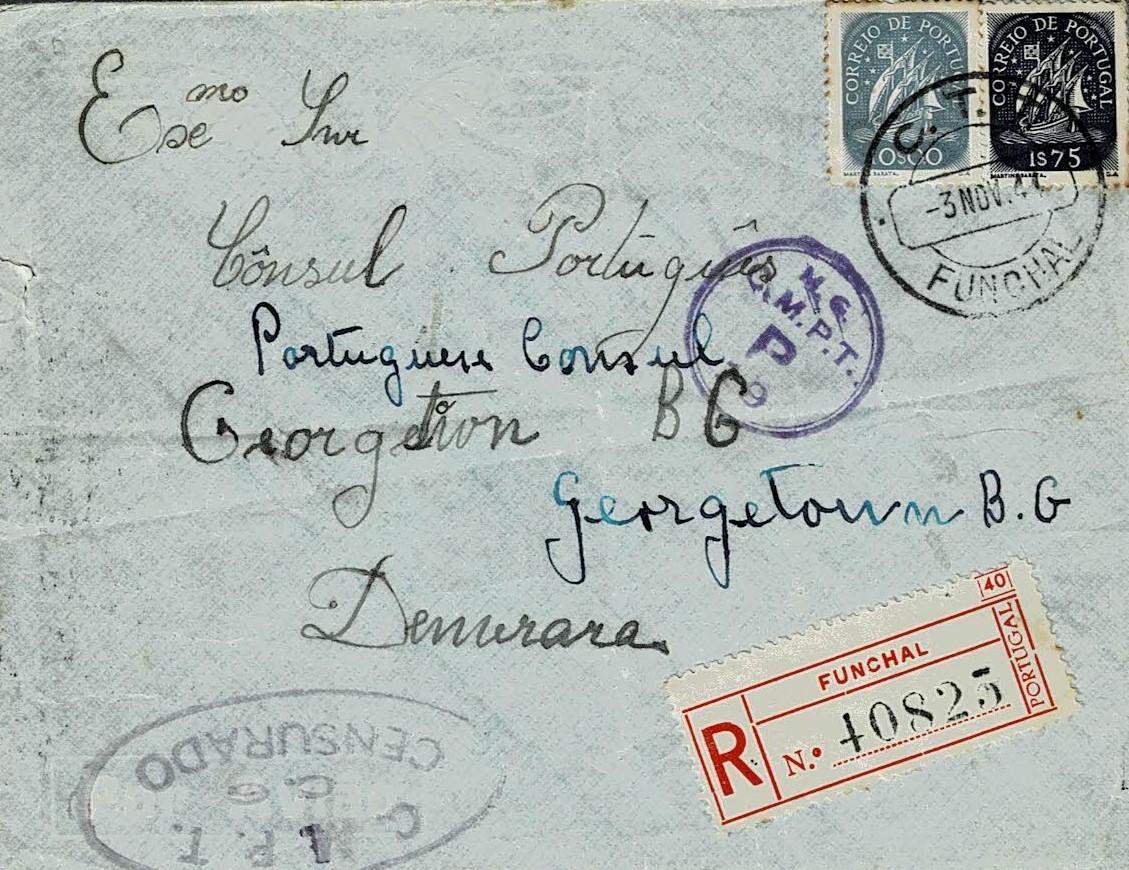 CORREIO DE PORTUGAL
10$00
MARTINS BARATA.
CORREIO DE PORTUGAL
1$75
MARTINS BARATA.
C. T. T.
-3 NOV. 44
FUNCHAL
Esemo Snr
Cônsul Português
M. G.
D.M.P.T.
P
Portuguese Consul
Georgetion B G
Georgetown B. G
Demerara
40
FUNCHAL
PORTUGAL
R
N.º 40825
C.M.P.T.
C. G.
CENSURADO